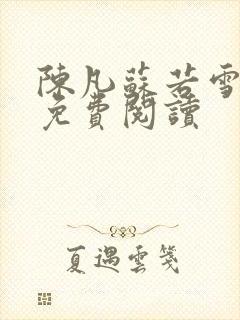 陳凡蘇若雪
免費閱讀
夏遇雲箋